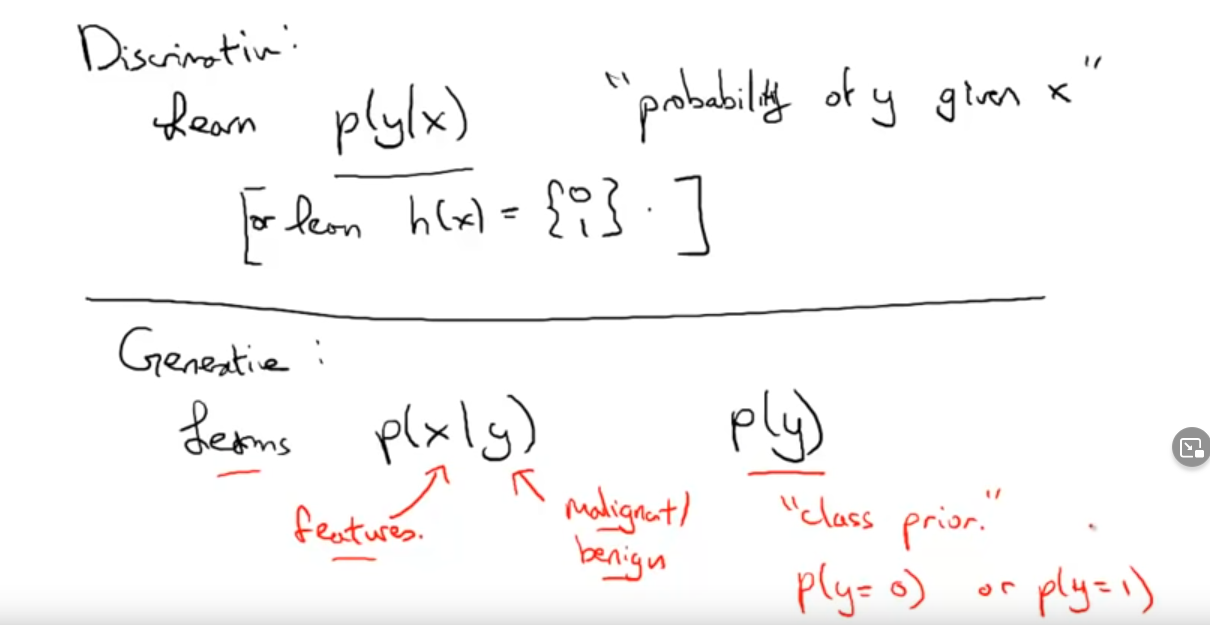 Discriminativ:
Learn p(y|x) "probability of y given x"
[or learn h(x) = {0 1}. ]
Generative:
Learns p(x|y) p(y)
features. malignant/ "class prior."
benign
p(y=0) or p(y=1)